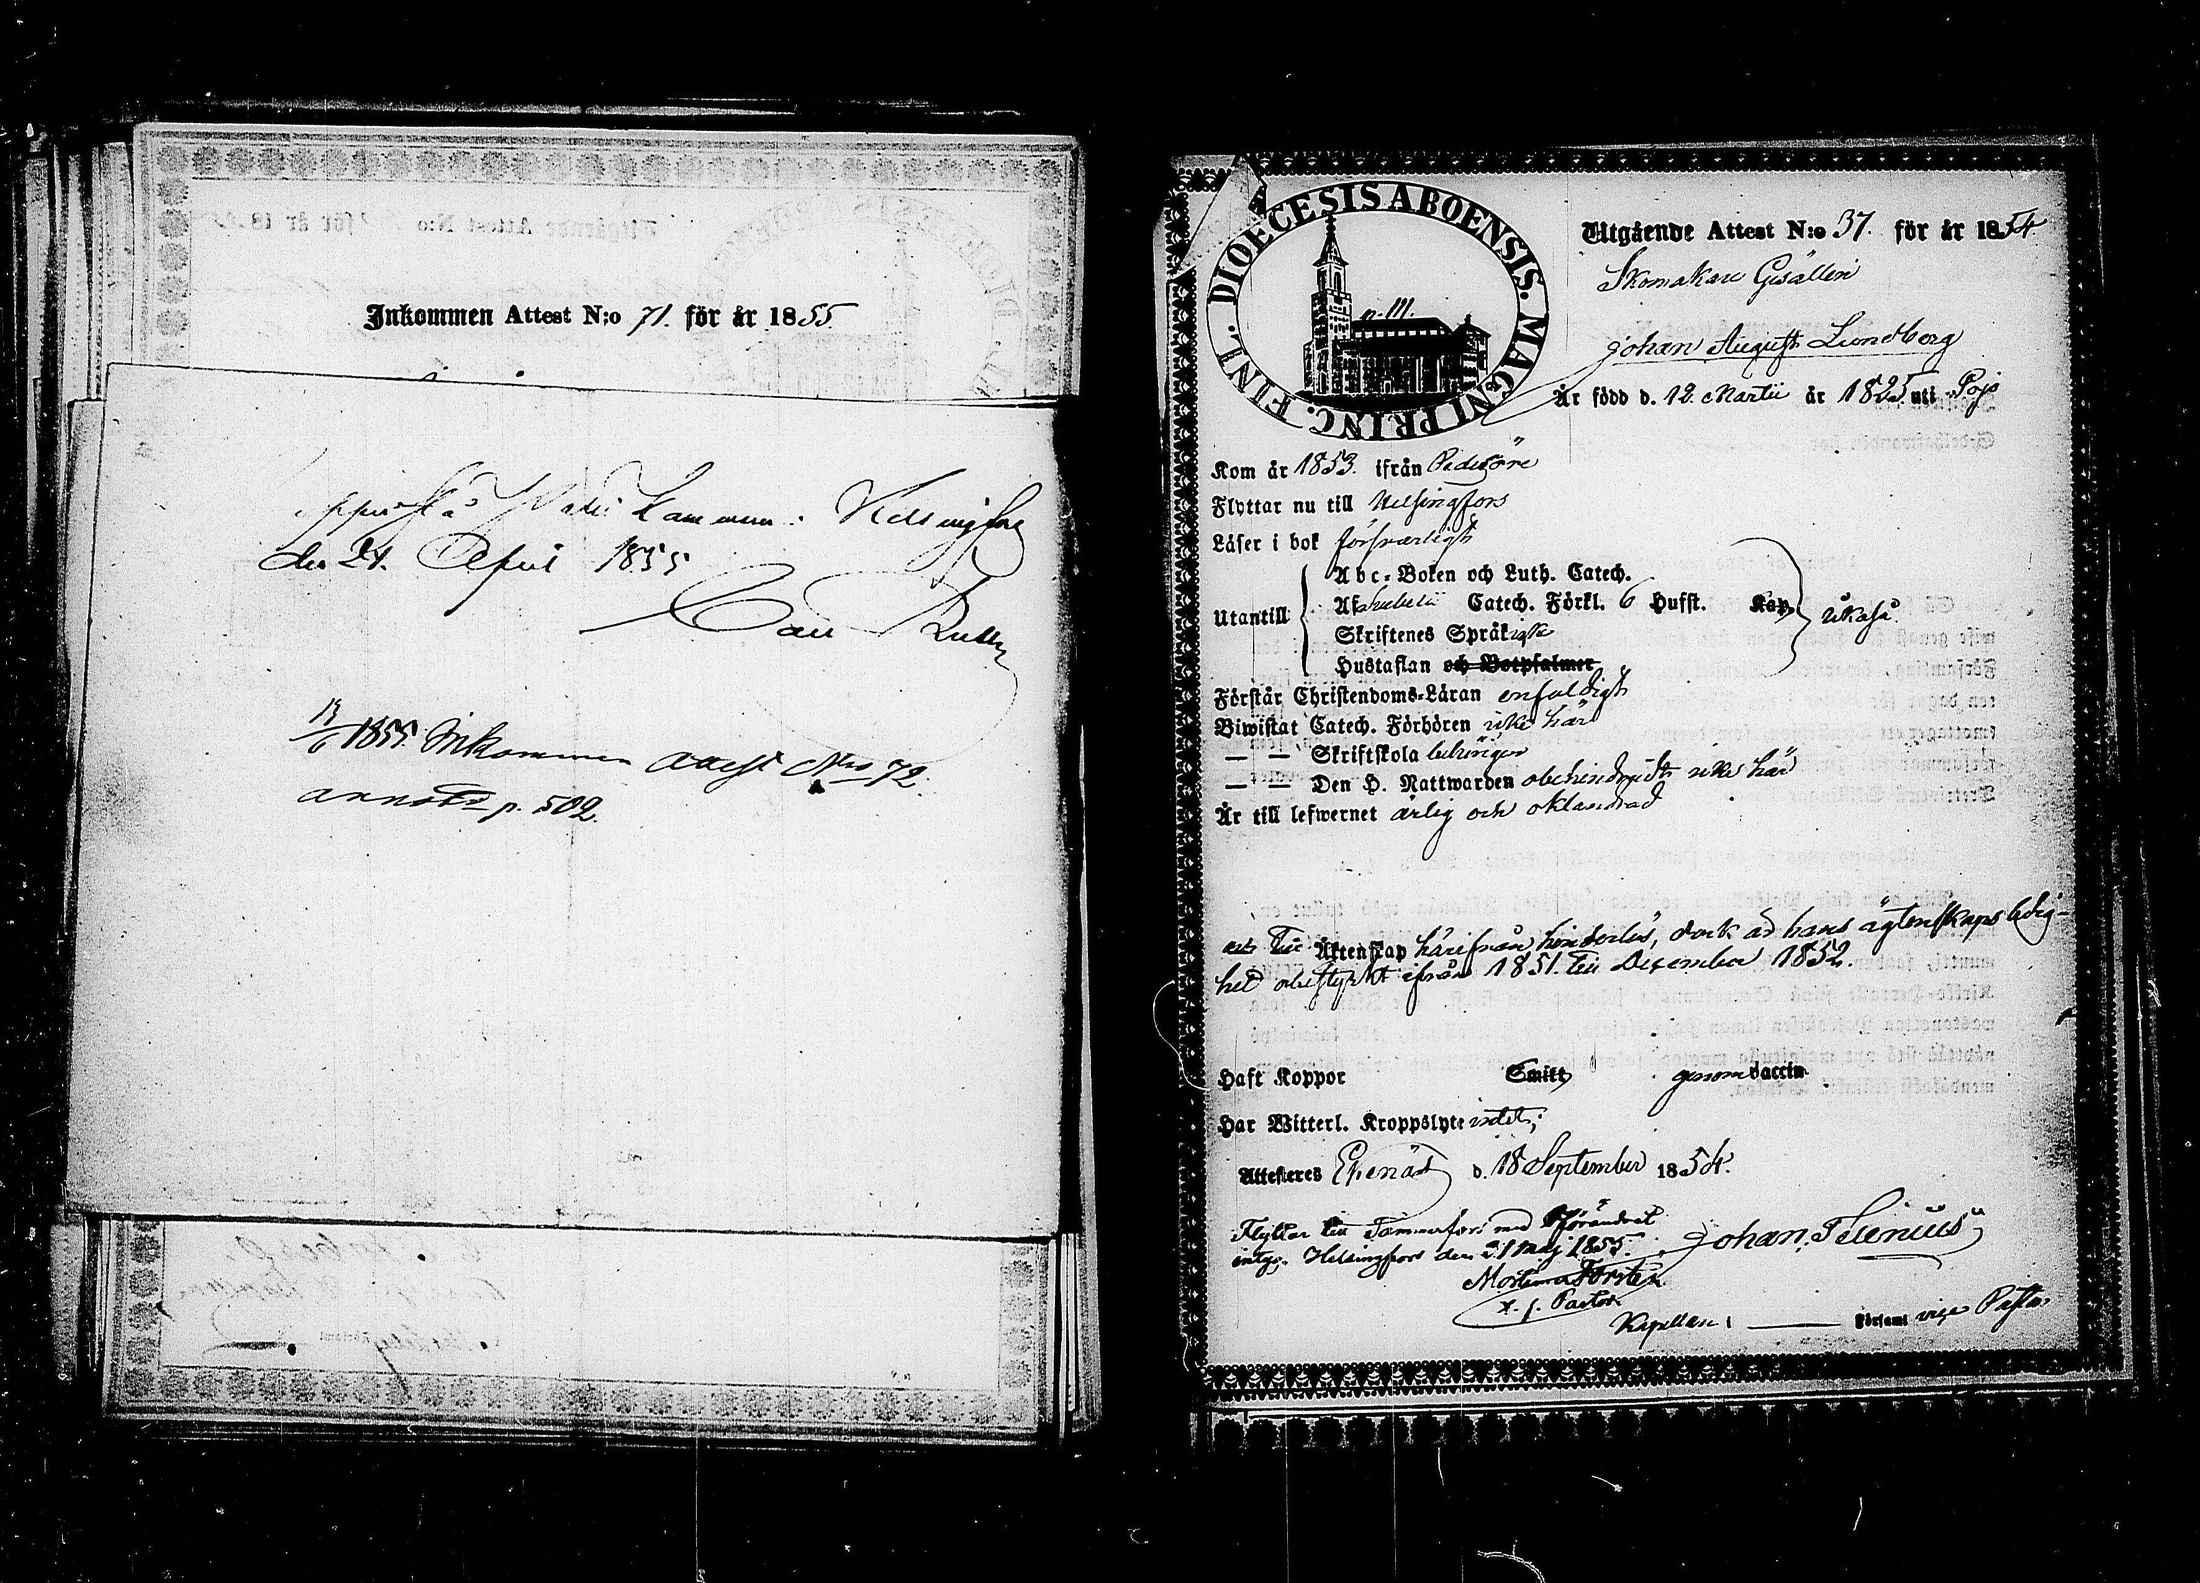 Inkommen Attest N:o 71. för år 1855.
Kammaren i Helsingfors
den 24. April 1855
13/6 1855. Inkommen attest No 72.
annoterd p. 502.
DIOECESIS ABOENSIS. MAGNI PRINC. FINL.
Utgående Attest N:o 37. för år 1854.
Skomakare Gesällen
p. 111.
Johan August Lundberg
Är född d. 12 Martii år 1825 uti Pojo
Kom år 1853. ifrån Pedersöre
Flyttar nu till Helsingfors
Läser i bok försvarligt
Abc-Boken och Luth. Catech.
Utantill Catech. Förkl. 6 Hufst. Kap. likaså.
Skriftenes Språk icke
Hustaflan och Botpsalmer
Förstår Christendoms-Läran enfaldigt
Biwistat Catech. Förhören icke här
— — Skriftskola behörigen
— — Den H. Nattwarden obehindradt icke här
Är till lefwernet ärlig och oklandrad
Till Äktenskap härifrån hinderlös, dock är hans ägtenskaps ledig-
het obestyrkt ifrån 1851. till December 1852.
Haft Koppor Smitt genom vaccin
Har Witterl. Kroppslyte intet;
Attesteres Ekenäs d. 18 September 1854.
Flyttar till Tammerfors med oförändrat
intyg. Helsingfors den 31 Maj 1855.
Johan Telenius
Mortimer Forstén
v. f. Pastor
Kapellan i — Församl vice Pastor